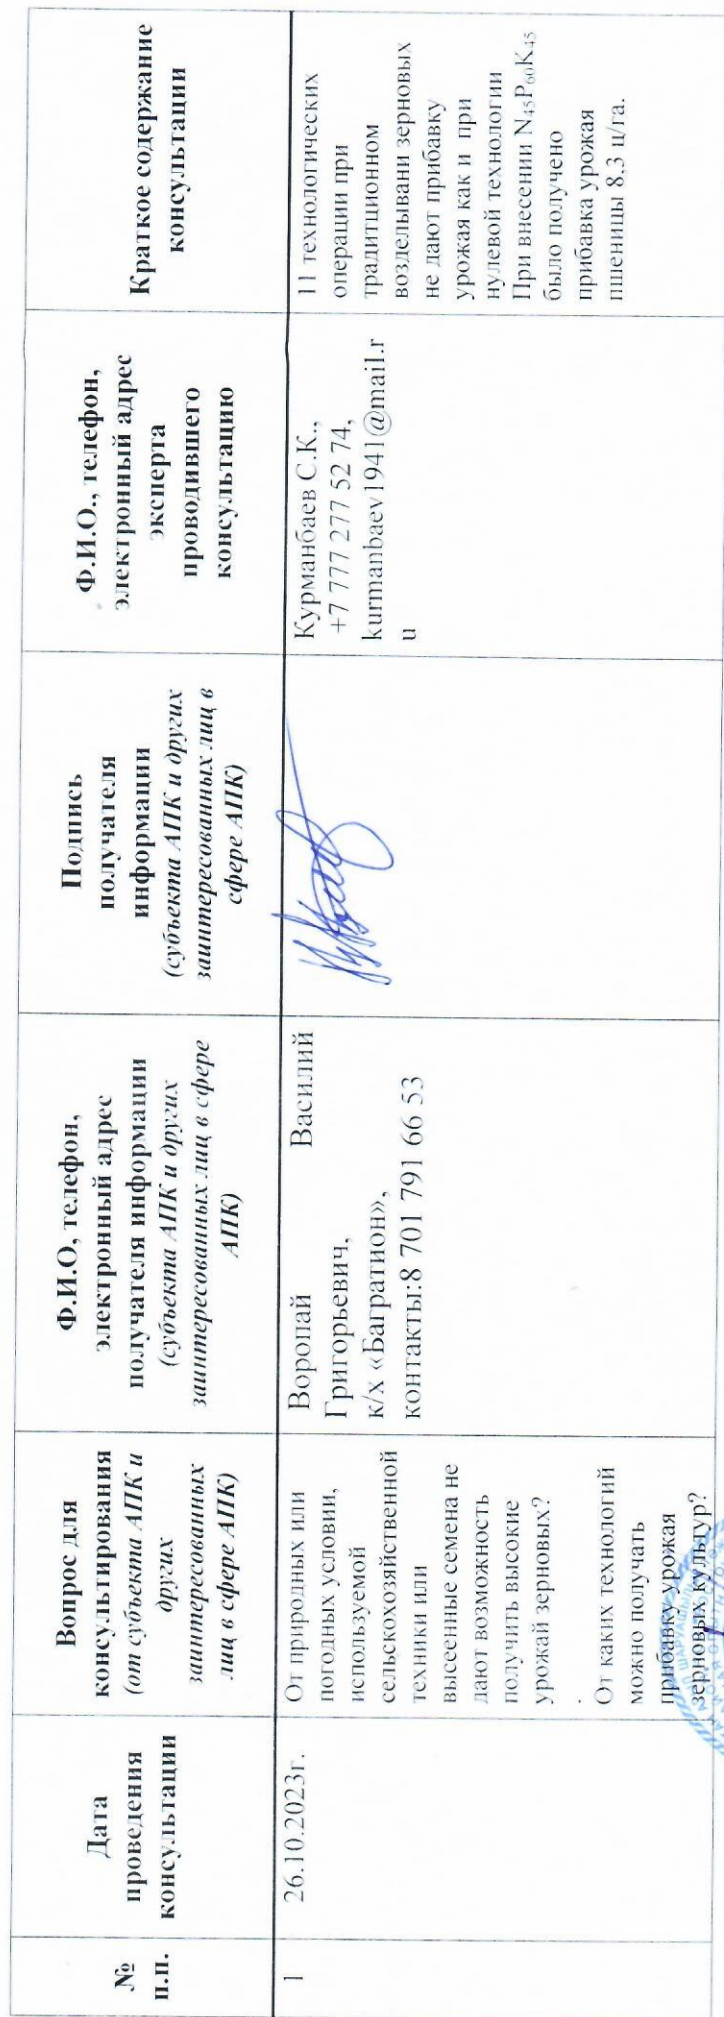 №
п.п.
Дата
проведения
консультации
Вопрос для
консультирования
(от субъекта АПК и
других
заинтересованных
лиц в сфере АПК)
Ф.И.О, телефон,
электронный адрес
получателя информации
(субъекта АПК и других
заинтересованных лиц в сфере
АПК)
Подпись
получателя
информации
(субъекта АПК и других
заинтересованных лиц в
сфере АПК)
Ф.И.О., телефон,
электронный адрес
эксперта
проводившего
консультацию
Краткое содержание
консультации
1
26.10.2023г.
От природных или
погодных условии,
используемой
сельскохозяйственной
техники или
высеенные семена не
дают возможность
получить высокие
урожай зерновых?
.
От каких технологий
можно получать
прибавку урожая
зерновых культур?
Воропай Василий
Григорьевич,
к/х «Багратион»,
контакты:8 701 791 66 53
Курманбаев С.К.,
+7 777 277 52 74,
kurmanbaev1941@mail.r
u
11 технологических
операции при
традитционном
возделывани зерновых
не дают прибавку
урожая как и при
нулевой технологии
При внесении N45P60K45
было получено
прибавка урожая
пшеницы 8,3 ц/га.